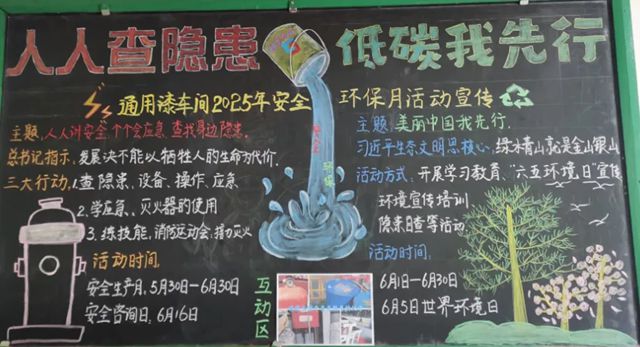 人人查隐患
低碳我先行
通用漆车间2025年安全
环保月活动宣传
主题：人人讲安全，个个会应急，查找身边隐患。
总书记指示：发展决不能以牺牲人的生命为代价.
三大行动：1.查隐患、设备、操作、应急
2.学应急、灭火器的使用
3.练技能，消防运动会，接力灭火
活动时间：
安全生产月，5月30日—6月30日
安全咨询日，6月16日
互动区
主题：美丽中国我先行.
习近平生态文明思核心：绿水青山就是金山银山
活动方式：开展学习教育、“六五环境日”宣传
环境宣传培训
隐患自查等活动.
活动时间：
6月1日—6月30日
6月5日世界环境日